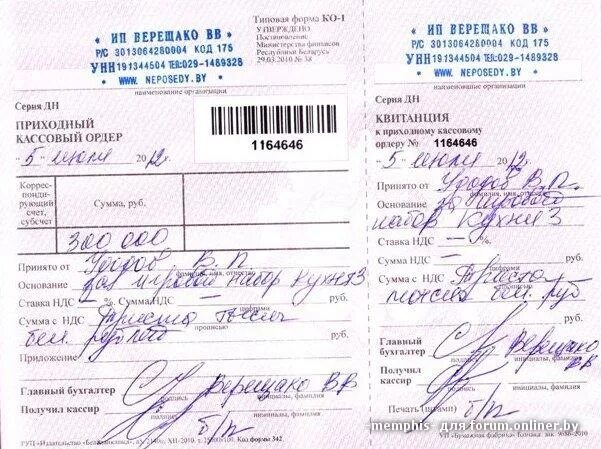 • ИП ВЕРЕЩАКО ВВ •
Р/С 3013064280004 КОД 175
УНН191344504 ТЕЛ:029-1489328
• WWW. NEPOSEDY.BY •
наименование организации
Типовая форма КО-1
УТВЕРЖДЕНО
Постановление
Министерства финансов
Республики Беларусь
29.03.2010 № 38
Серия ДН
ПРИХОДНЫЙ
КАССОВЫЙ ОРДЕР
1164646
5 июля 2012г.
Коррес-
понди-
рующий
счет,
субсчет
Сумма, руб.
300 000
Принято от Удодов В.П.
фамилия, имя, отчество
Основание за игровой набор Кухня 3
Ставка НДС — %. Сумма НДС — руб.
цифрами
Сумма с НДС Триста тысяч
прописью
бел. рублей руб.
Приложение
Главный бухгалтер Верещако ВВ
подпись инициалы, фамилия
Получил кассир б/п
подпись инициалы, фамилия
Код формы 342
• ИП ВЕРЕЩАКО ВВ •
Р/С 3013064280004 КОД 175
УНН191344504 ТЕЛ:029-1489328
• WWW. NEPOSEDY.BY •
наименование организации
Серия ДН
КВИТАНЦИЯ
к приходному кассовому
ордеру № 1164646
5 июля 2012г.
Принято от Удодов В.П.
фамилия, имя, отчество
Основание за игровой
набор Кухня 3
Ставка НДС — %.
Сумма НДС — руб.
цифрами
Сумма с НДС Триста
прописью
тысяч бел. руб
Главный
бухгалтер Верещако
ВВ
подпись инициалы, фамилия
Получил
кассир
подпись инициалы, фамилия
Печать (штамп) б/п
-memphis- для forum.onliner.by